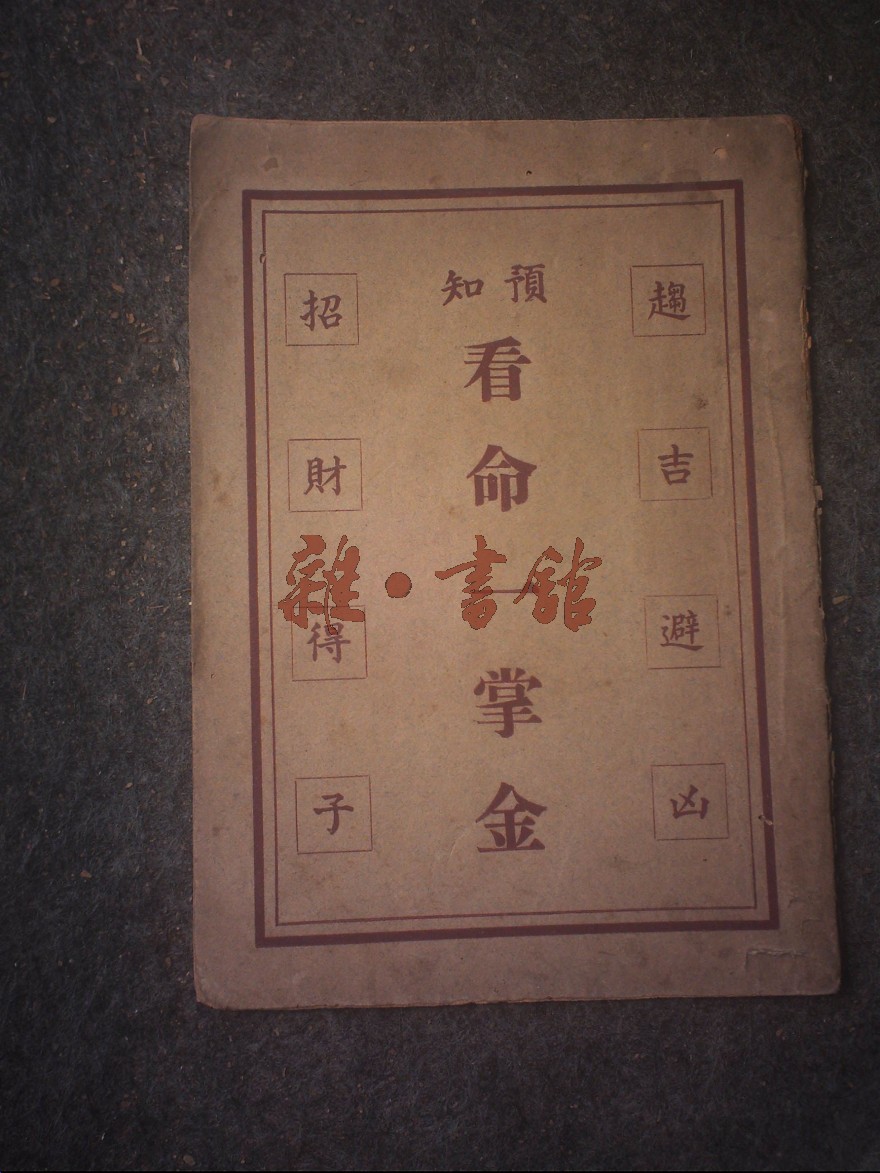 趨吉避凶
預知
看命一掌金
招財得子
雜·書館